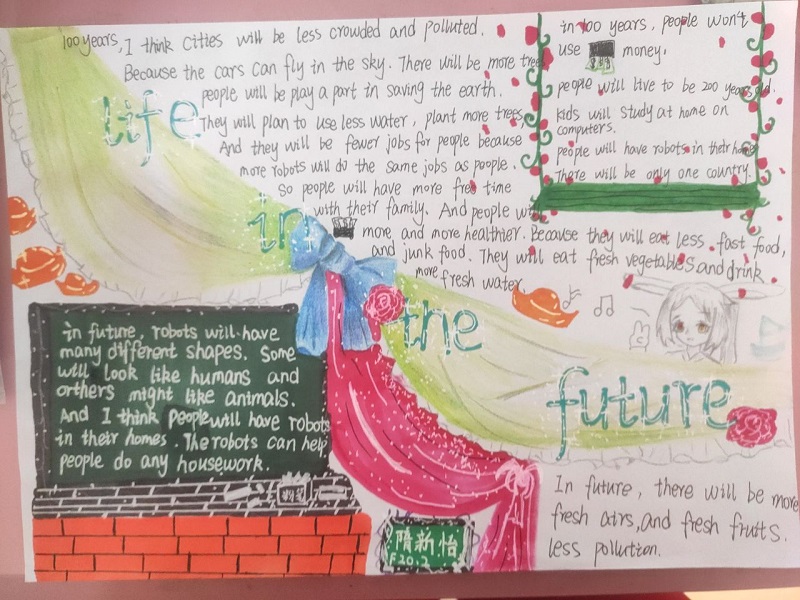 life
in
the
future
100 years, I think cities will be less crowded and polluted.
Because the cars can fly in the sky. There will be more trees
people will be play a part in saving the earth.
They will plan to use less water, plant more trees,
And they will be fewer jobs for people because
more robots will do the same jobs as people.
So people will have more free time
with their family. And people will
more and more healthier. Because they will eat less fast food,
and junk food. They will eat fresh vegetables and drink
more fresh water.
in 100 years, people won't
use money.
people will live to be 200 years old.
kids will study at home on
computers.
people will have robots in their home
There will be only one country.
in future, robots will have
many different shapes. Some
will look like humans and
orthers might like animals.
And I think People will have robots
in their homes. The robots can help
people do any housework.
粉笔
隋新怡
F20.2
In future, there will be more
fresh airs, and fresh fruits.
less pollution.